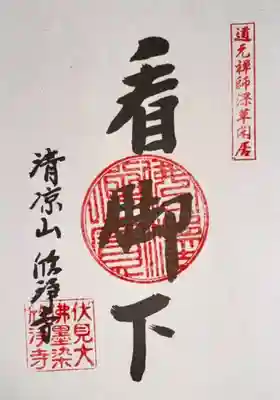 道元禪師深草閑居
看脚下
清凉山 欣浄寺
伏見大
佛墨染
欣浄寺